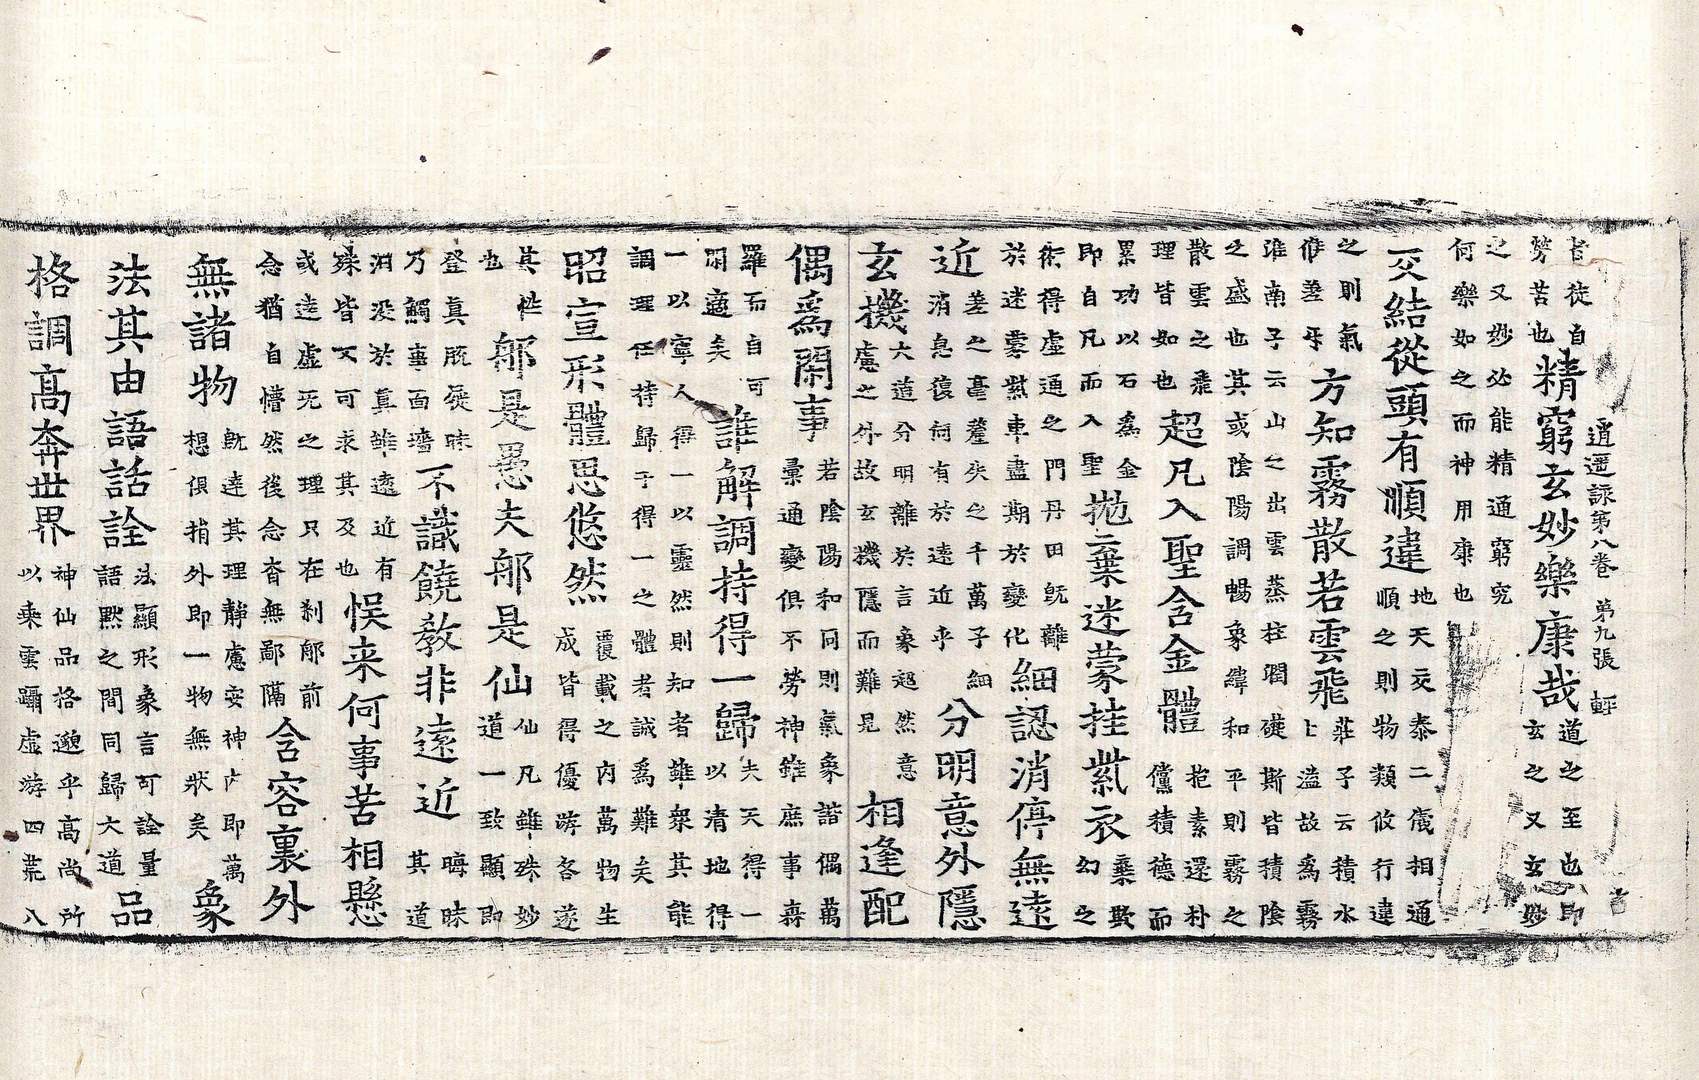 旨徒自
勞苦也
精窮玄妙樂康哉
道之至也即
玄之又玄妙
逍遥詠第八卷 第九張 輕
之又妙必能精通窮究
何樂如之而神用康也
交結從頭有順違
地天交泰二儀相通
順之則物類攸行違
之則氣
候差乎
方知霧散若雲飛
莊子云積水
上溢故為霧
淮南子云山之出雲蒸柱潤礎斯皆積陰
之盛也其或陰陽調暢象緯和平則霧之
散雲之飛
理皆如也
超凡入聖含金體
抱素還朴
儻積德而
累功以石為金
即自凡而入聖
拋棄迷蒙挂紫衣
棄欺
幻之
術得虛通之門丹田旣離
於迷霧紫車盡期於變化
細認消停無遠
近
差之毫釐失之千萬子細
消息復何有於遠近乎
分明意外隱
玄機
六道分明離於言象超然意
慮之外故玄機隱而難見
相逢配
偶爲閑事
若陰陽和同則氣象諧偶萬
彙通變俱不勞神雖庶事森
羅而自可
閑適矣
誰解調持得一歸
夫天得一
以清地得
一以寧人得一以靈然則知者雖衆其能
調理任持歸于得一之體者誠爲難矣
昭宣形體思悠然
覆載之内萬物生
成皆得優游各遂
其性
也
那是愚夫那是仙
仙凡雖殊妙
道一致顯即
登真脱屣昧
乃觸事面墻
不識饒教非遠近
晦昧
其道
汨没於真雖遠近有
殊皆不可求其及也
悮来何事苦相懸
或達虛无之理只在刹那前
念猶自懵然後念杳無鄙隔
含容裏外
無諸物
旣達其理靜慮安神广即萬
想俱捐外即一物無狀矣
象
法其由語話詮
法顯形象言可詮量
語默之間同歸大道
品
格調高奔世界
神仙品格邈乎高尚所
以乘雲躡虛游四荒八